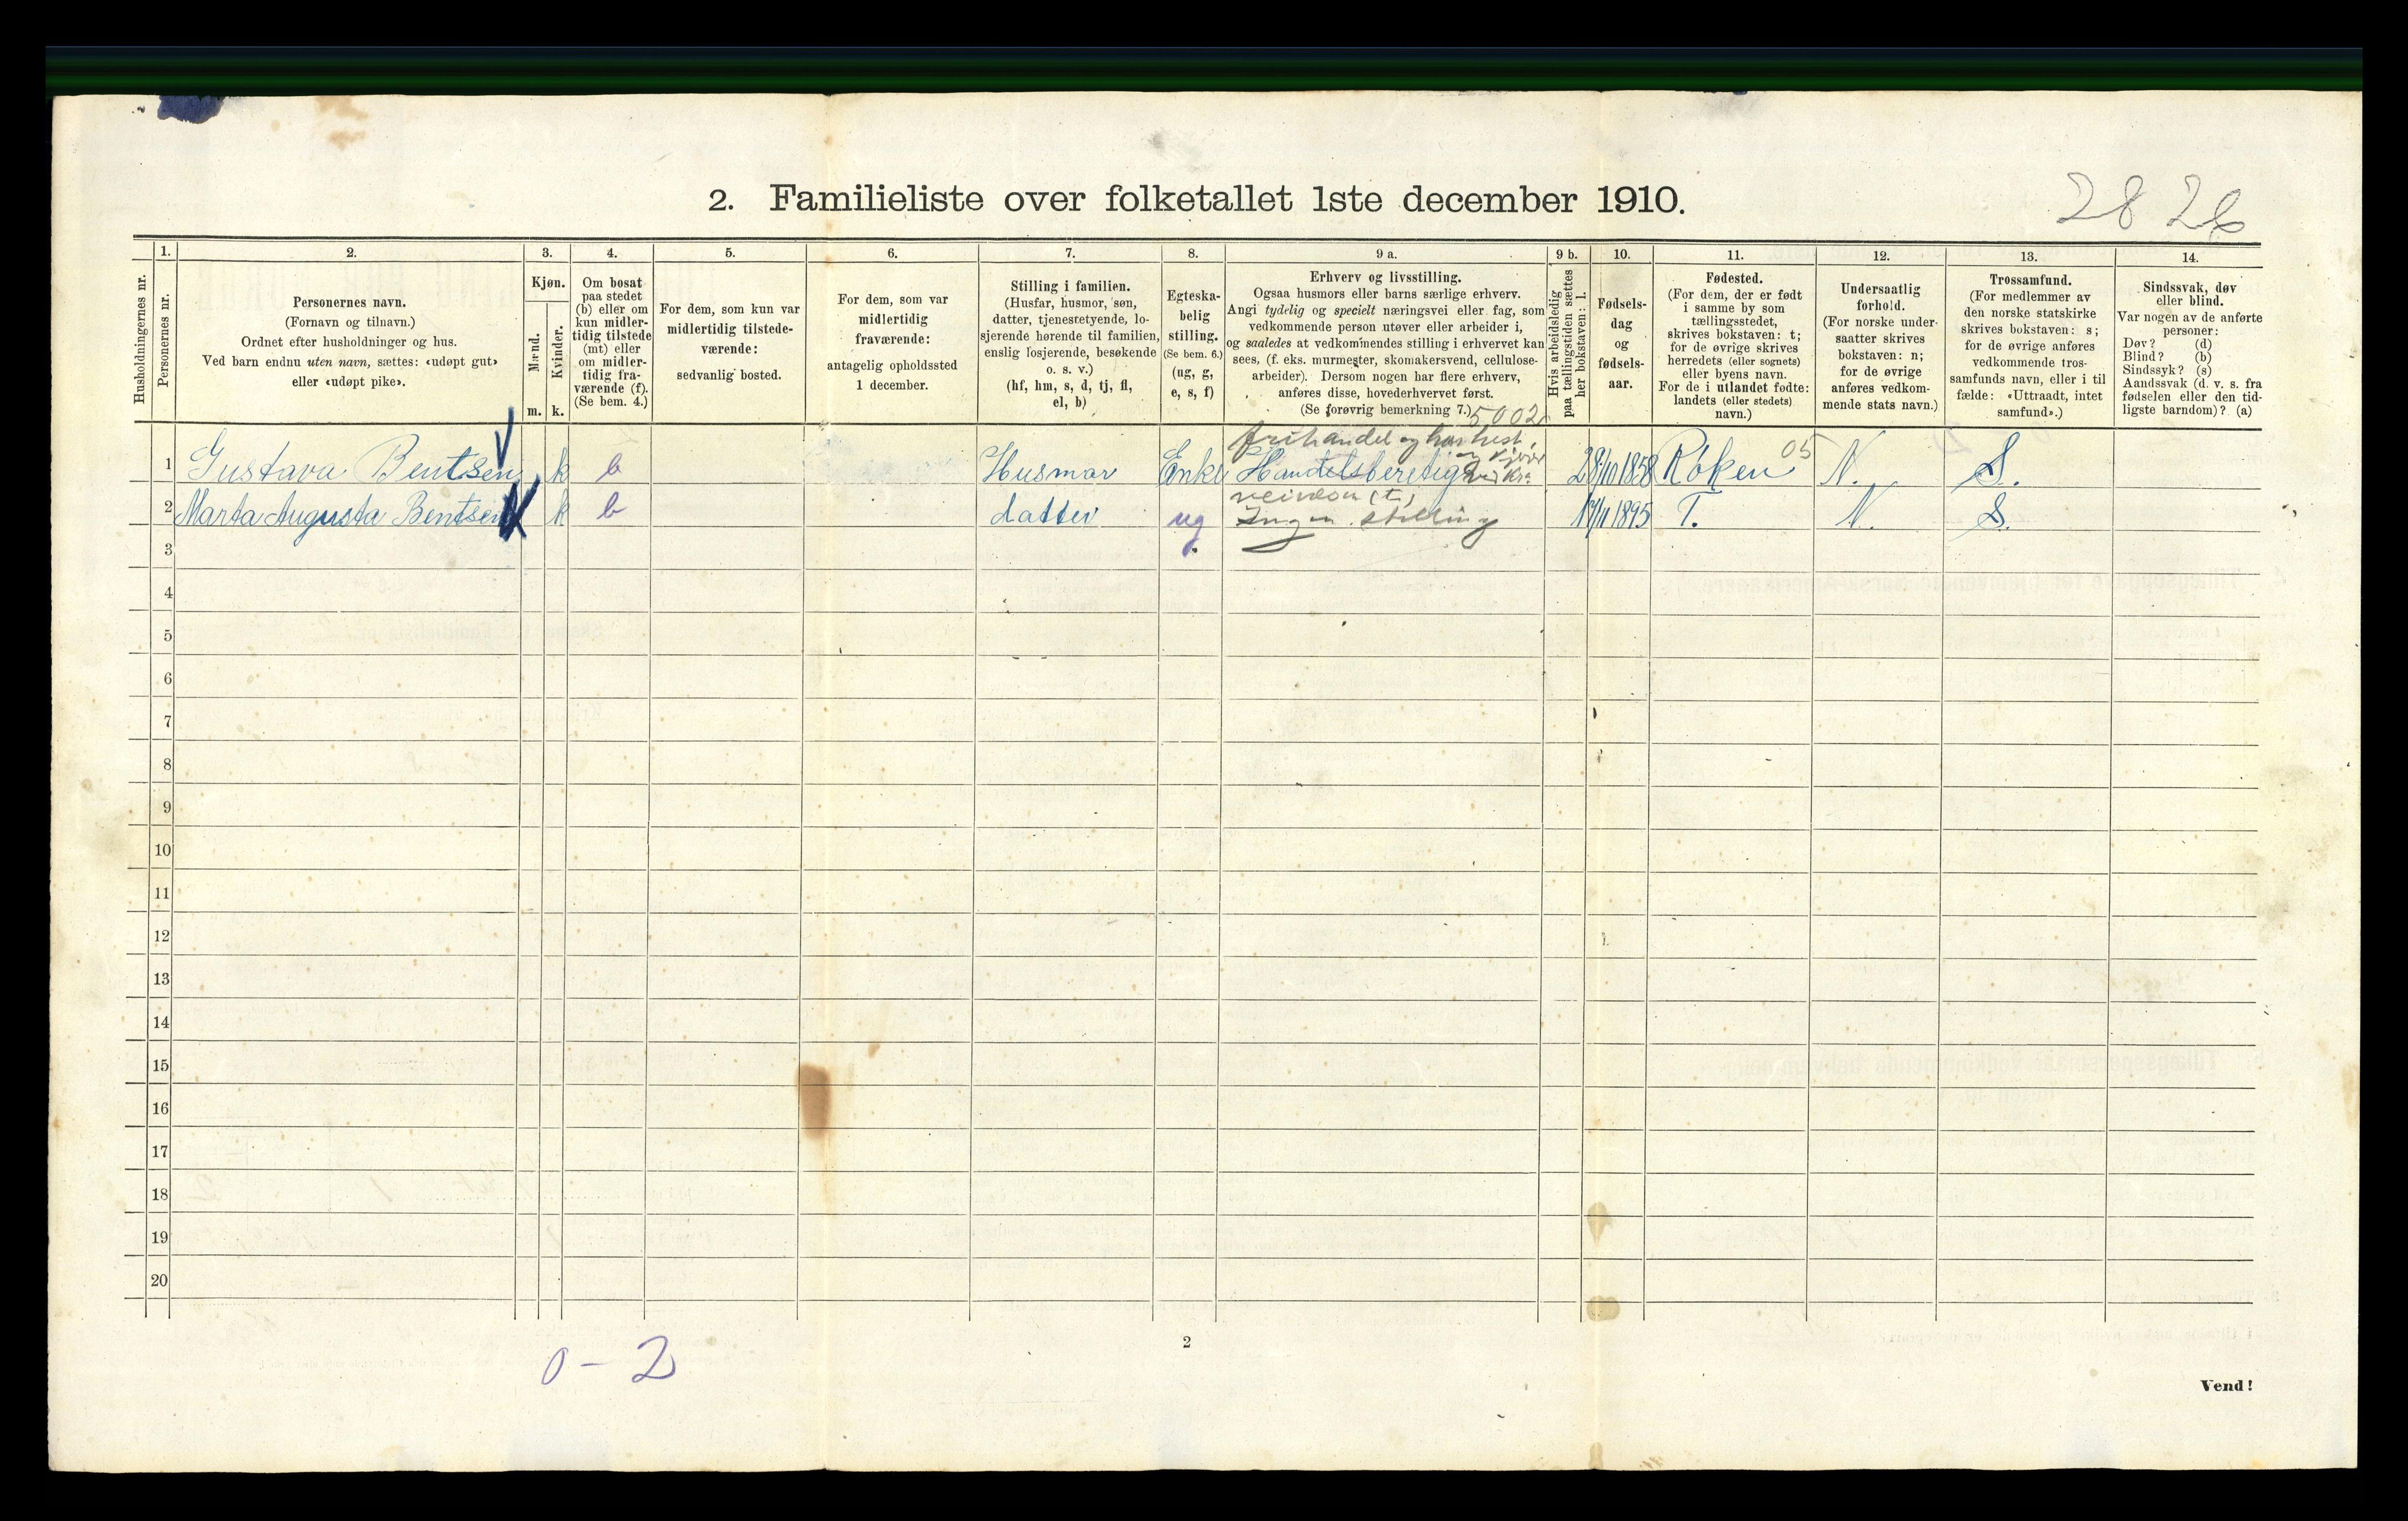 2. Familieliste over folketallet 1ste december 1910.
28 26
Husholdningernes nr.
1.
Personernes nr.
2.
Personernes navn.
(Fornavn og tilnavn.)
Ordnet efter husholdninger og hus.
Ved barn endnu uten navn, sættes: «udøpt gut»
eller «udøpt pike».
3.
Kjøn.
Mænd.
Kvinder.
m. k.
4.
Om bosat
paa stedet
(b) eller om
kun midler-
tidig tilstede
(mt) eller
om midler-
tidig fra-
værende (f).
(Se bem. 4.)
5.
For dem, som kun var
midlertidig tilstede-
værende:
sedvanlig bosted.
6.
For dem, som var
midlertidig
fraværende:
antagelig opholdssted
1 december.
7.
Stilling i familien.
(Husfar, husmor, søn,
datter, tjenestetyende, lo-
sjerende hørende til familien,
enslig losjerende, besøkende
o. s. v.)
(hf, hm, s, d, tj, fl,
el, b)
8.
Egteska-
belig
stilling.
(Se bem. 6.)
(ug, g,
e, s, f)
9 a.
Erhverv og livsstilling.
Ogsaa husmors eller barns særlige erhverv.
Angi tydelig og specielt næringsvei eller fag, som
vedkommende person utøver eller arbeider i,
og saaledes at vedkommendes stilling i erhvervet kan
sees, (f. eks. murmester, skomakersvend, cellulose-
arbeider). Dersom nogen har flere erhverv,
anføres disse, hovederhvervet først.
(Se forøvrig bemerkning 7.)
5002
9 b.
Hvis arbeidsledig
paa tællingstiden sættes
her bokstaven: l.
10.
Fødsels-
dag
og
fødsels-
aar.
11.
Fødested.
(For dem, der er født
i samme by som
tællingsstedet,
skrives bokstaven: t;
for de øvrige skrives
herredets (eller sognets)
eller byens navn.
For de i utlandet fødte:
landets (eller stedets)
navn.)
12.
Undersaatlig
forhold.
(For norske under-
saatter skrives
bokstaven: n;
for de øvrige
anføres vedkom-
mende stats navn.)
13.
Trossamfund.
(For medlemmer av
den norske statskirke
skrives bokstaven: s;
for de øvrige anføres
vedkommende tros-
samfunds navn, eller i til
fælde: «Uttraadt, intet
samfund».)
14.
Sindssvak, døv
eller blind.
Var nogen av de anførte
personer:
Døv? (d)
Blind? (b)
Sindssyk? (s)
Aandssvak (d. v. s. fra
fødselen eller den tid-
ligste barndom)? (a)
frihandel og har hest
1 Gustava Bentsen k b Husmor Enke Handelsberetig 28/10 1858 Røken 05 N. S.
2 Marta Augusta Bentsen k b datter ug Ingen stilling 17/11 1895 T. N. S.
3
4
5
6
7
8
9
10
11
12
13
14
15
16
17
18
19
20
0 - 2
2
Vend!